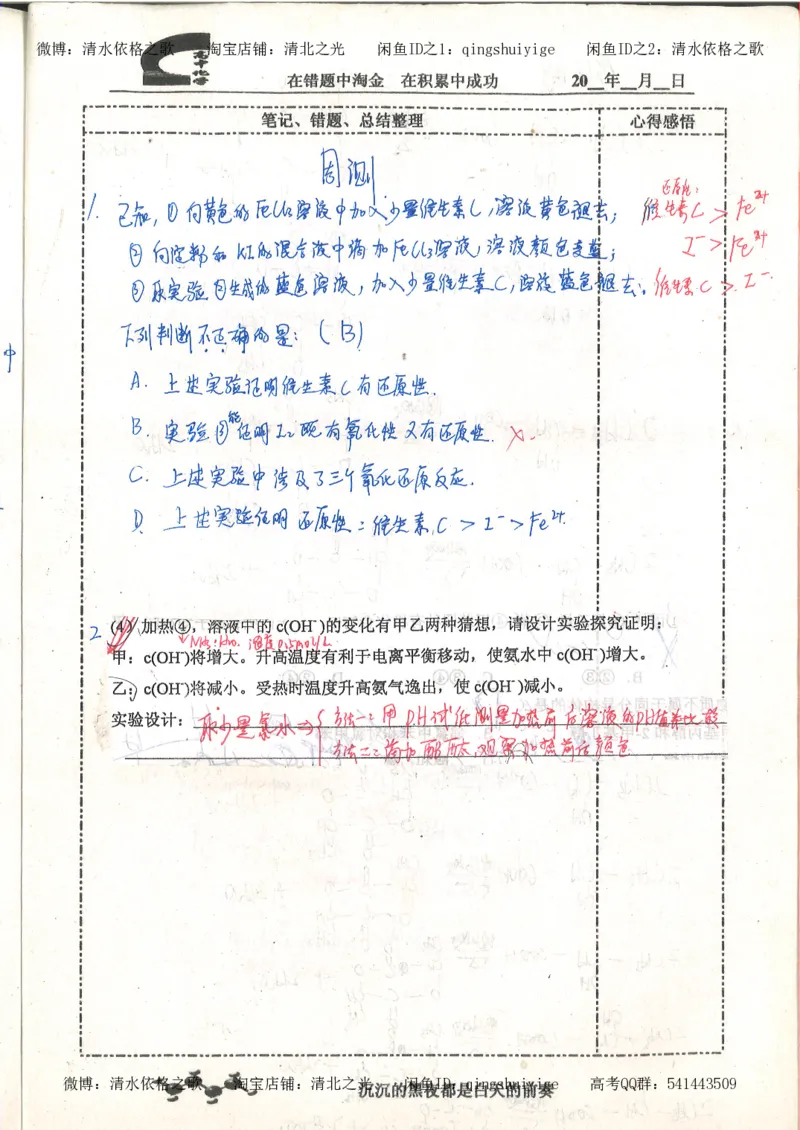 微博：清水依格之歌 淘宝店铺：清北之光 闲鱼ID之1：qingshuiyige 闲鱼ID之2：清水依格之歌
在错题中淘金 在积累中成功 20__年__月__日
笔记、错题、总结整理 心得感悟
周测
还原性：
1. 已知，①向黄色的FeCl3溶液中加入少量维生素C，溶液黄色褪去； 维生素C > Fe2+
②向淀粉和KI的混合液中滴加FeCl3溶液，溶液颜色变蓝； I- > Fe2+
③取实验②生成的蓝色溶液，加入少量维生素C，溶液蓝色褪去。 维生素C > I-.
下列判断不正确的是：（B）
A. 上述实验证明维生素C有还原性.
B. 实验③能证明I2既有氧化性又有还原性. ×
C. 上述实验中涉及了三个氧化还原反应.
D 上述实验证明还原性：维生素C > I- > Fe2+
2 (4) 加热④，溶液中的 c(OH-)的变化有甲乙两种猜想，请设计实验探究证明：
NH3·H2O. 浓度0.5mol/L
甲：c(OH-)将增大。升高温度有利于电离平衡移动，使氨水中 c(OH-)增大。
乙：c(OH-)将减小。受热时温度升高氨气逸出，使 c(OH-)减小。
实验设计：取少量氨水→{方法一：用PH试纸测量加热前后溶液的PH值来比较
方法二：滴加酚酞，观察加热前后颜色
微博：清水依格之歌 淘宝店铺：清北之光 闲鱼ID：qingshuiyige 高考QQ群：541443509
沉沉的黑夜都是白天的前奏